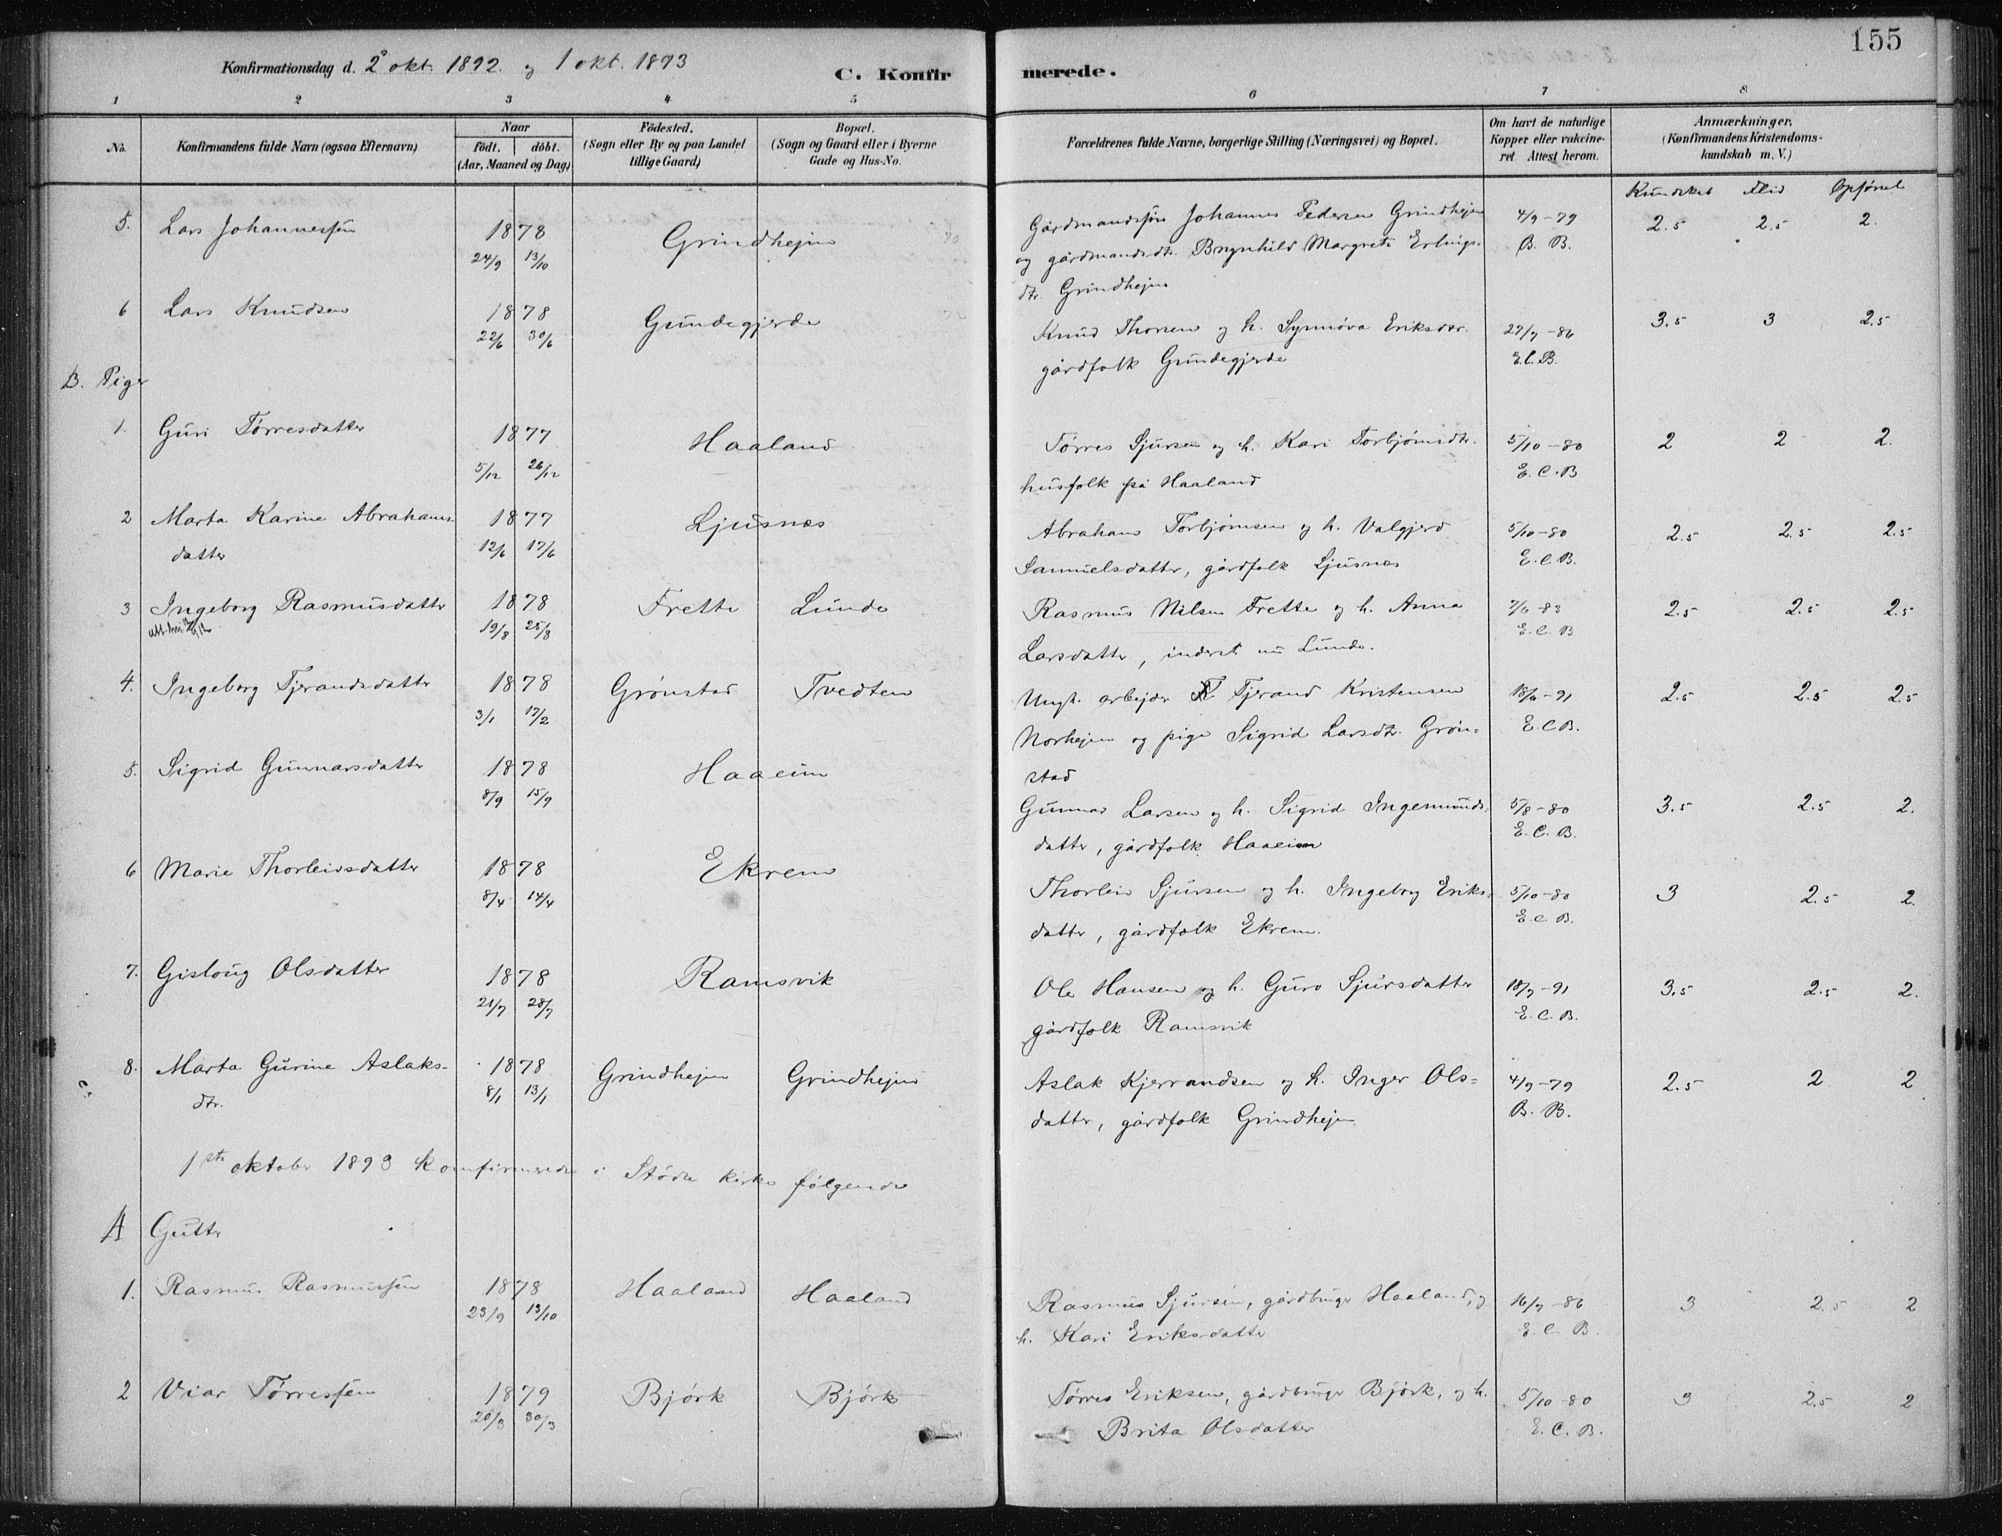 155
Konfirmationsdag d. 2 okt. 1892. og 1 okt. 1893
C. Konfirmerede.
1 2 3 4 5 6 7 8
No.
Konfirmandens fulde Navn (ogsaa Efternavn)
Naar
födt. döbt.
(Aar, Maaned og Dag)
Födested.
(Sogn eller By og paa Landet
tillige Gaard)
Bopæl.
(Sogn og Gaard eller i Byerne
Gade og Hus-No.
Forældrenes fulde Navne, borgerlige Stilling (Næringsvei) og Bopæl.
Om havt de naturlige
Kopper eller vakcine-
ret Attest herom.
Anmærkninger.
(Konfirmandens Kristendoms-
kundskab m. V.)
Kundskab Flid Opførsel
5. Lars Johannessen 1878 Grindhejm Gårdmandssøn Johannes Pedersen Grindhejm 4/9-79 2.5 2.5 2.
24/9 13/10 og gårdmandsdtr. Brynhild Margrete Erlings- B. B.
dtr. Grindhejm
6 Lars Knudsen 1878 Gundegjerde Knud Thorsen og h. Synnøva Eriksdtr. 27/7-86 3.5 3 2.5
22/6 30/6 gårdfolk Gundegjerde E.C.B.
B. Piger
1. Guri Tørresdatter 1877 Haaland Tørres Sjursen og h. Kari Torbjørnsdtr. 5/10-80 2 2 2.
5/12 26/12 husfolk på Haaland E.C.B
2 Marta Karine Abrahams- 1877 Ljusnes Abraham Torbjørnsen og h. Valgjerd 5/10-80 2.5 2.5 2.5
datter 12/6 17/6 Samuelsdatter, gårdfolk Ljusnes E.C.B.
3 Ingeborg Rasmusdatter 1878 Frette Lunde Rasmus Nilsen Frette og h. Anna 7/6-83 2.5 2.5 2.5
19/8 25/8 Larsdatter, inderst nu Lunde. E.C.B
4. Ingeborg Tjerandsdatter 1878 Grønstad Tvedten Ungk. arbejder Tjerand Kristensen 18/6-91 2.5 2.5 2.5
3/1 17/2 Norhejm og pige Sigrid Larsdtr. Grøn- E.C.B.
stad
5. Sigrid Gunnarsdatter 1878 Haaeim Gunnar Larsen og h. Sigrid Ingemunds- 5/8-80 3.5 2.5 2.
8/9 15/9 datter, gårdfolk Haaeim E.C.B.
6 Marie Thorleivsdatter 1878 Ekrem Thorleiv Sjursen og h. Ingeborg Eriks- 5/10-80 3 2.5 2.
8/4 14/4 datter, gårdfolk Ekrem. E.C.B.
7. Gisloug Olsdatter 1878 Ramsvik Ole Hansen og h. Guro Sjursdatter 18/7-91 3.5 2.5 2.
21/7 28/7 gårdfolk Ramsvik E.C.B.
8. Marta Gurine Aslaks- 1878 Grindhejm Grindhejm Aslak Kjerrandsen og h. Inger Ols- 4/9-79 2.5 2 2
dtr. 8/1 13/1 datter, gårdfolk Grindhejm B. B.
1ste oktober 1893 konfirmerede i Stødle kirke følgende
A Gutter
1. Rasmus Rasmussen 1878 Haaland Haaland Rasmus Sjursen, gårdbruger Haaland, og 16/7-86 3 2.5 2
23/9 13/10 h. Kari Eriksdatter E.C.B.
2 Viar Tørressen 1879 Bjørk Bjørk Tørres Eriksen, gårdbruger Bjørk, og h. 5/10-80 3 2.5 2
20/3 30/3 Brita Olsdatter E.C.B.